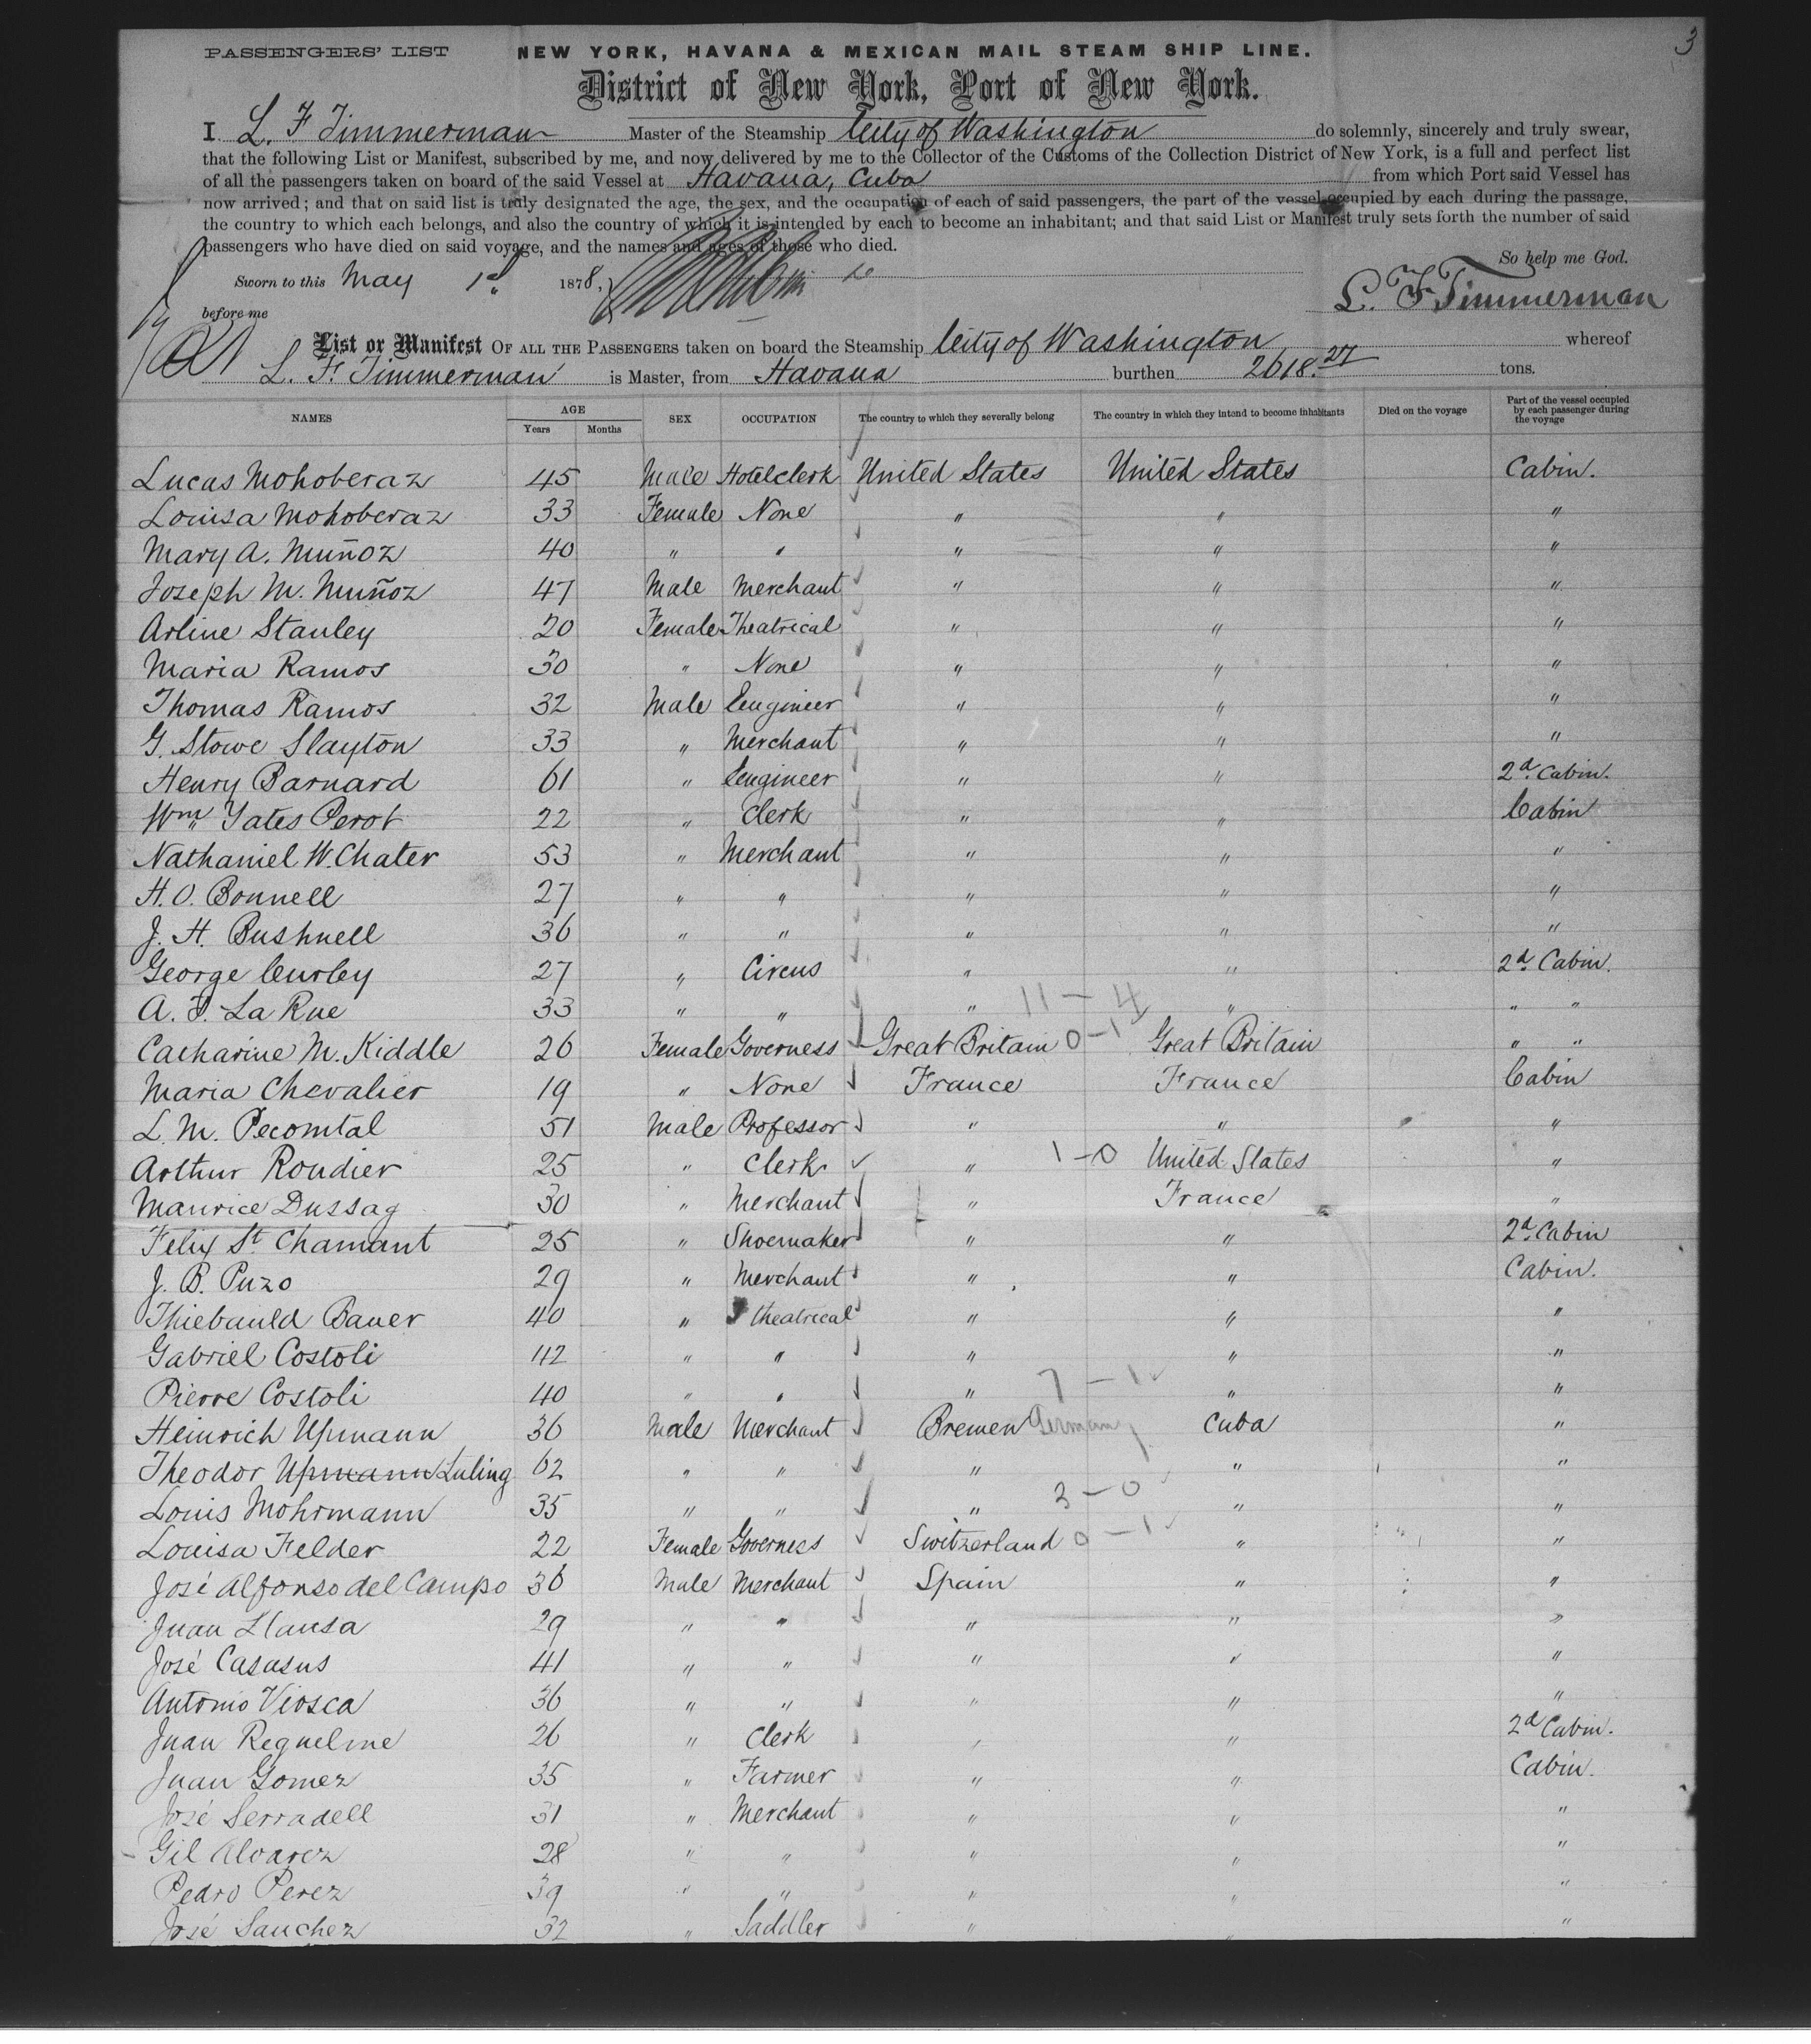 3
PASSENGERS' LIST NEW YORK, HAVANA & MEXICAN MAIL STEAM SHIP LINE.
District of New York, Port of New York.
I L. F Timmerman Master of the Steamship City of Washington do solemnly, sincerely and truly swear,
that the following List or Manifest, subscribed by me, and now delivered by me to the Collector of the Customs of the Collection District of New York, is a full and perfect list
of all the passengers taken on board of the said Vessel at Havana, Cuba from which Port said Vessel has
now arrived; and that on said list is truly designated the age, the sex, and the occupation of each of said passengers, the part of the vessel occupied by each during the passage,
the country to which each belongs, and also the country of which it is intended by each to become an inhabitant; and that said List or Manifest truly sets forth the number of said
passengers who have died on said voyage, and the names and ages of those who died.
So help me God.
Sworn to this May 1st 1878,
before me L. F Timmerman
List or Manifest OF ALL THE PASSENGERS taken on board the Steamship City of Washington whereof
L. F. Timmerman is Master, from Havana burthen 2618.27 tons.
NAMES AGE Years Months SEX OCCUPATION The country to which they severally belong The country in which they intend to become inhabitants Died on the voyage Part of the vessel occupied by each passenger during the voyage
Lucas Mohoberaz 45 Male Hotel clerk United States United States Cabin.
Louisa Mohoberaz 33 Female None " " "
Mary A. Muñoz 40 " " " " "
Joseph M. Muñoz 47 Male Merchant " " "
Arline Stanley 20 Female Theatrical " " "
Maria Ramos 30 " None " " "
Thomas Ramos 32 Male Engineer " " "
G. Stowe Slayton 33 " Merchant " " "
Henry Barnard 61 " Engineer " " 2d. Cabin.
Wm. Yates Perot 22 " Clerk " " Cabin
Nathaniel W. Chater 53 " Merchant " " "
H. O. Bonnell 27 " " " " "
J. H. Bushnell 36 " " " " "
George Curley 27 " Circus " " 2d. Cabin.
A. F. La Rue 33 " " " 11 - 4 " " "
Catharine M. Kiddle 26 Female Governess Great Britain 0-1 Great Britain " "
Maria Chevalier 19 " None France France Cabin
L. M. Pecomtal 51 Male Professor " " "
Arthur Roudier 25 " Clerk " 1-0 United States "
Maurice Dussaq 30 " Merchant " France "
Felix St. Chamant 25 " Shoemaker " " 2d. Cabin
J. B. Puzo 29 " Merchant " " Cabin.
Thiebauld Bauer 40 " Theatrical " " "
Gabriel Costoli 42 " " " " "
Pierre Costoli 40 " " " 7 - 1 " "
Heinrich Upmann 36 Male Merchant Bremen Germany Cuba "
Theodor Upmann Luling 62 " " " " "
Louis Mohrmann 35 " " " 3 - 0 " "
Louisa Felder 22 Female Governess Switzerland 0 - 1 " "
José Alfonso del Campo 36 Male Merchant Spain " "
Juan Llansa 29 " " " " "
José Casasus 41 " " " " "
Antonio Viosca 36 " " " " "
Juan Requeline 26 " Clerk " " 2d Cabin.
Juan Gomez 35 " Farmer " " Cabin.
José Serradell 31 " Merchant " " "
Gil Alvarez 28 " " " " "
Pedro Perez 39 " " " " "
José Sanchez 32 " Saddler " " "